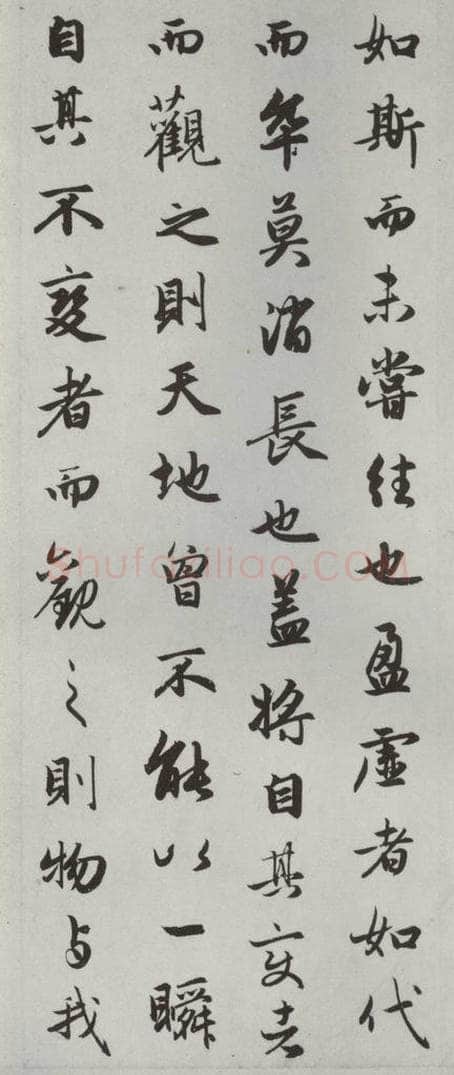 如斯而未嘗往也盈虛者如代
而卒莫消長也盖將自其变者
而觀之則天地曾不能以一瞬
自其不變者而觀之則物与我
shufaziliao.COM